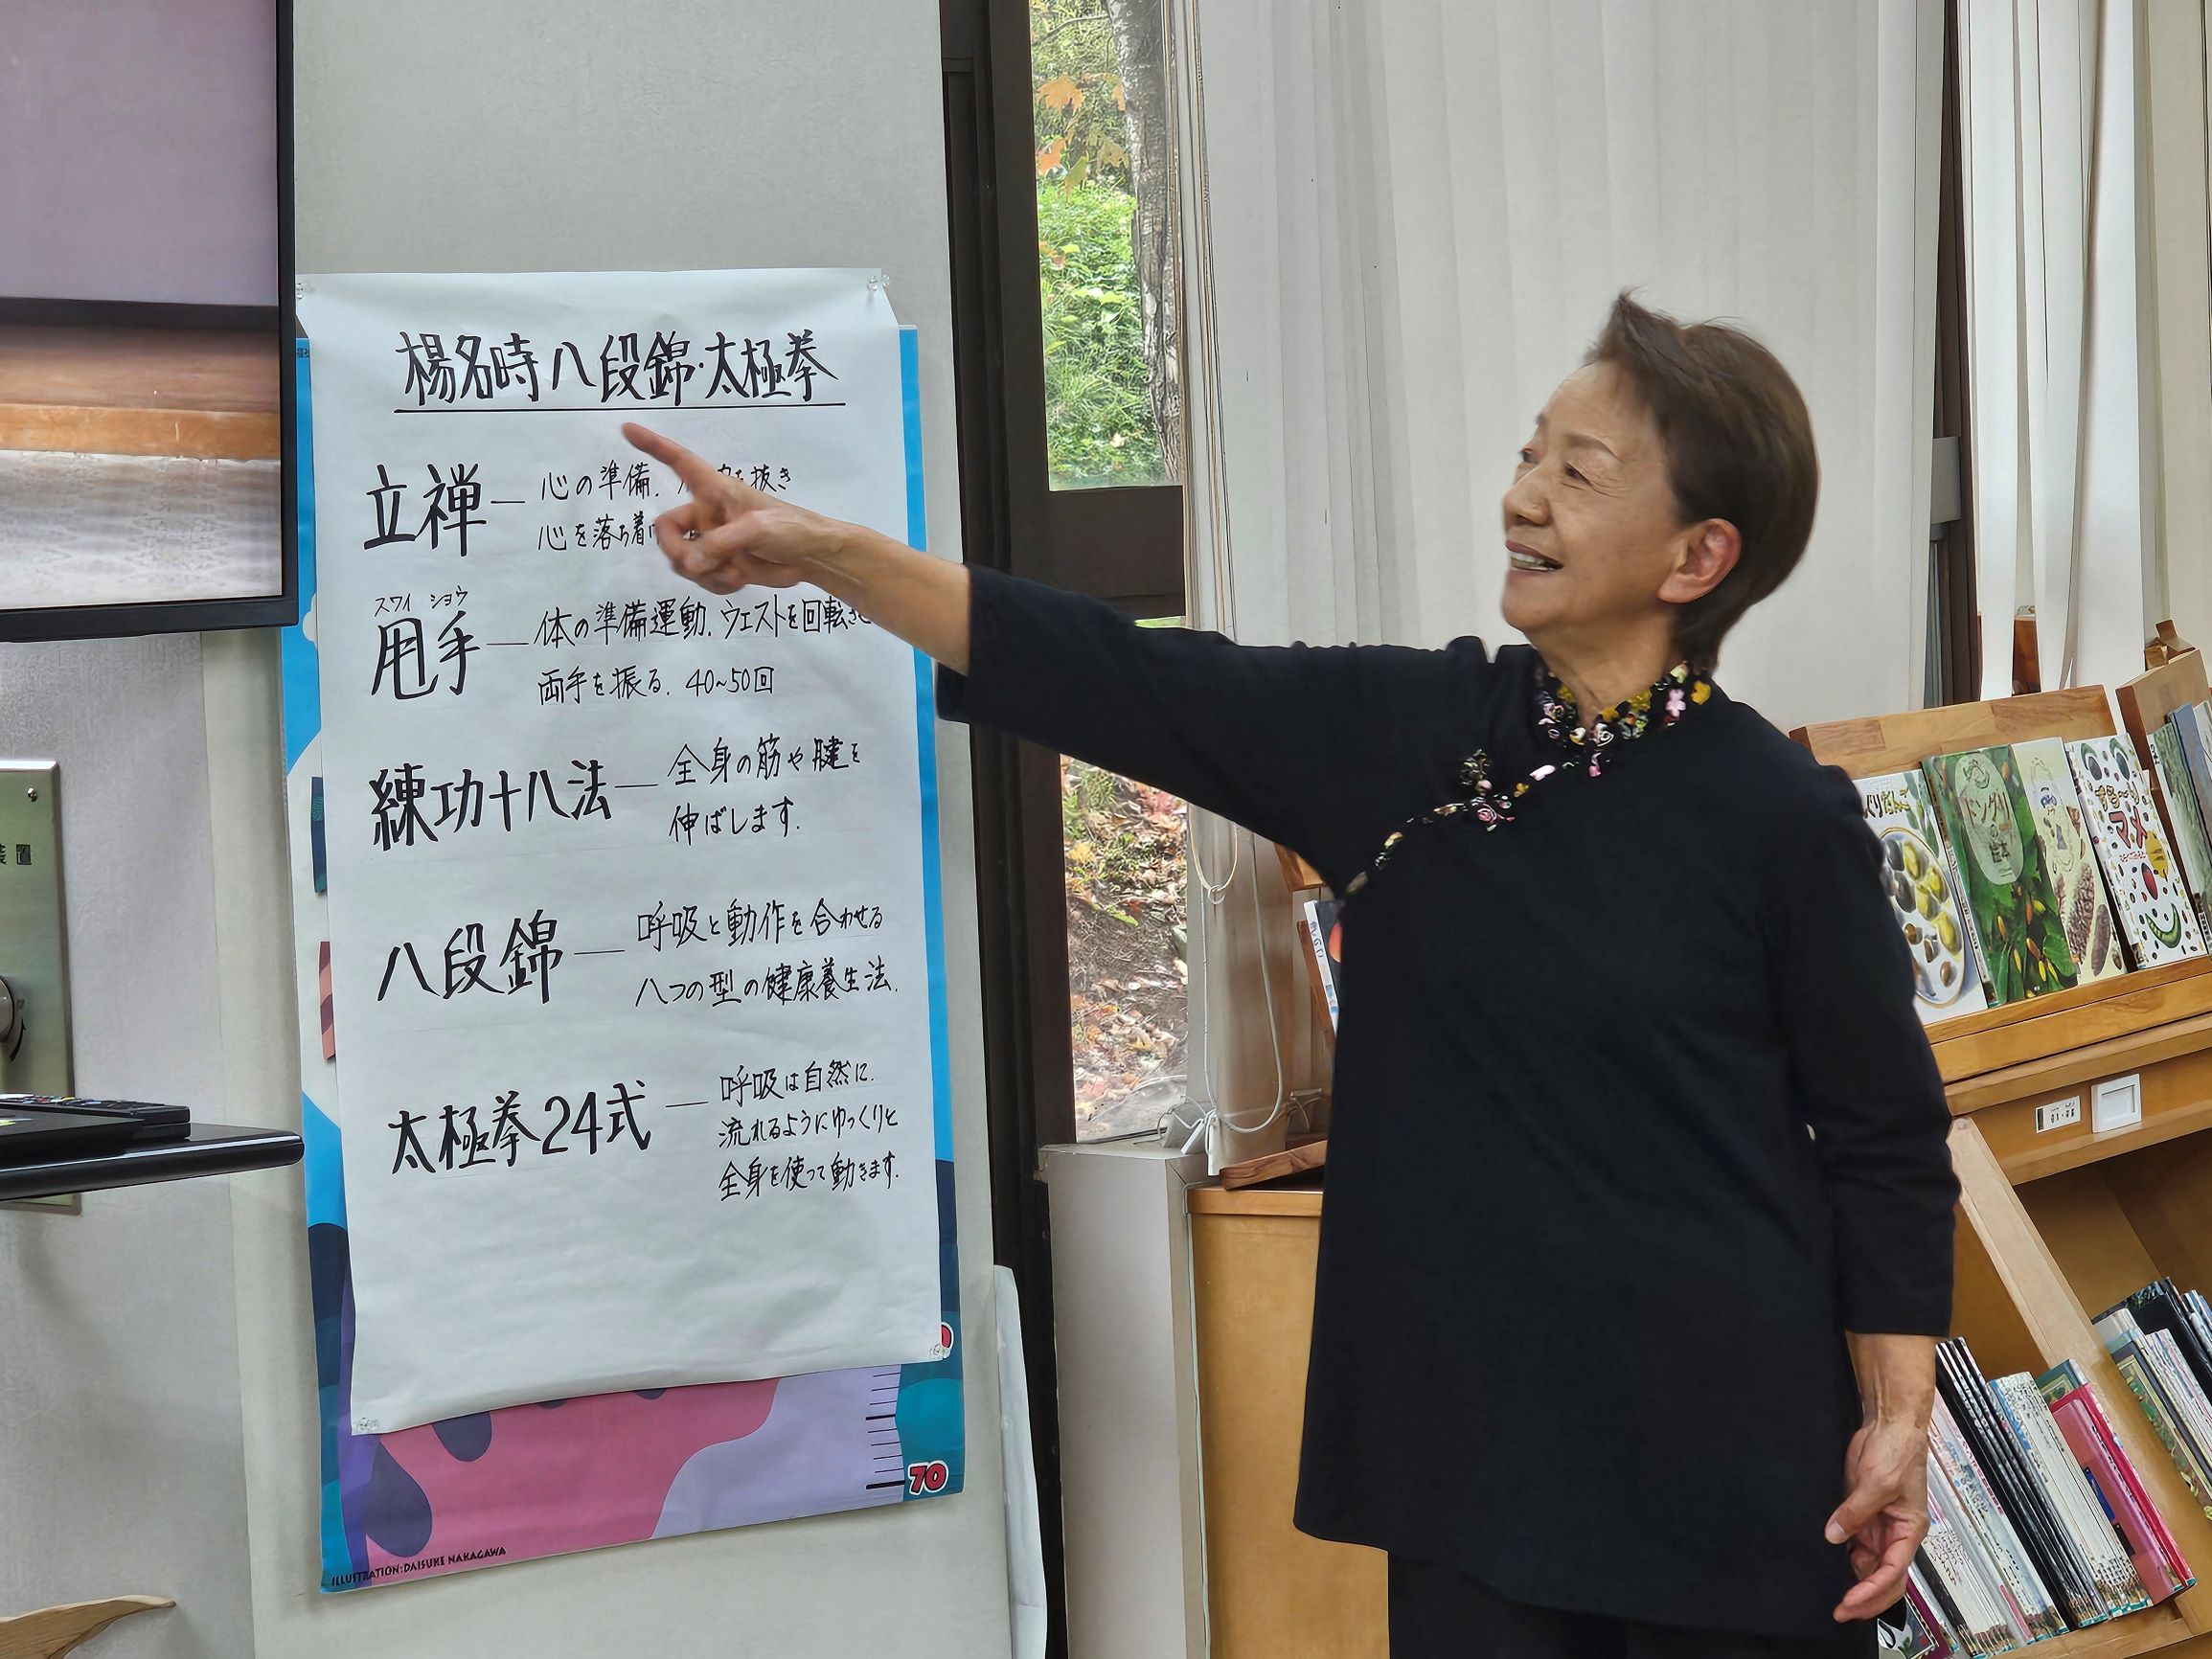 楊名時八段錦・太極拳
立禅 — 心の準備. を抜き
心を落ち着
スワイ ショウ
甩手 — 体の準備運動. ウェストを回転させ
両手を振る. 40~50回
練功十八法 — 全身の筋や腱を
伸ばします.
八段錦 — 呼吸と動作を合わせる
八つの型の健康養生法.
太極拳24式 — 呼吸は自然に.
流れるようにゆっくりと
全身を使って動きます.
70
ILLUSTRATION:DAISUKE NAKAGAWA
装置
ドングリ
マメ